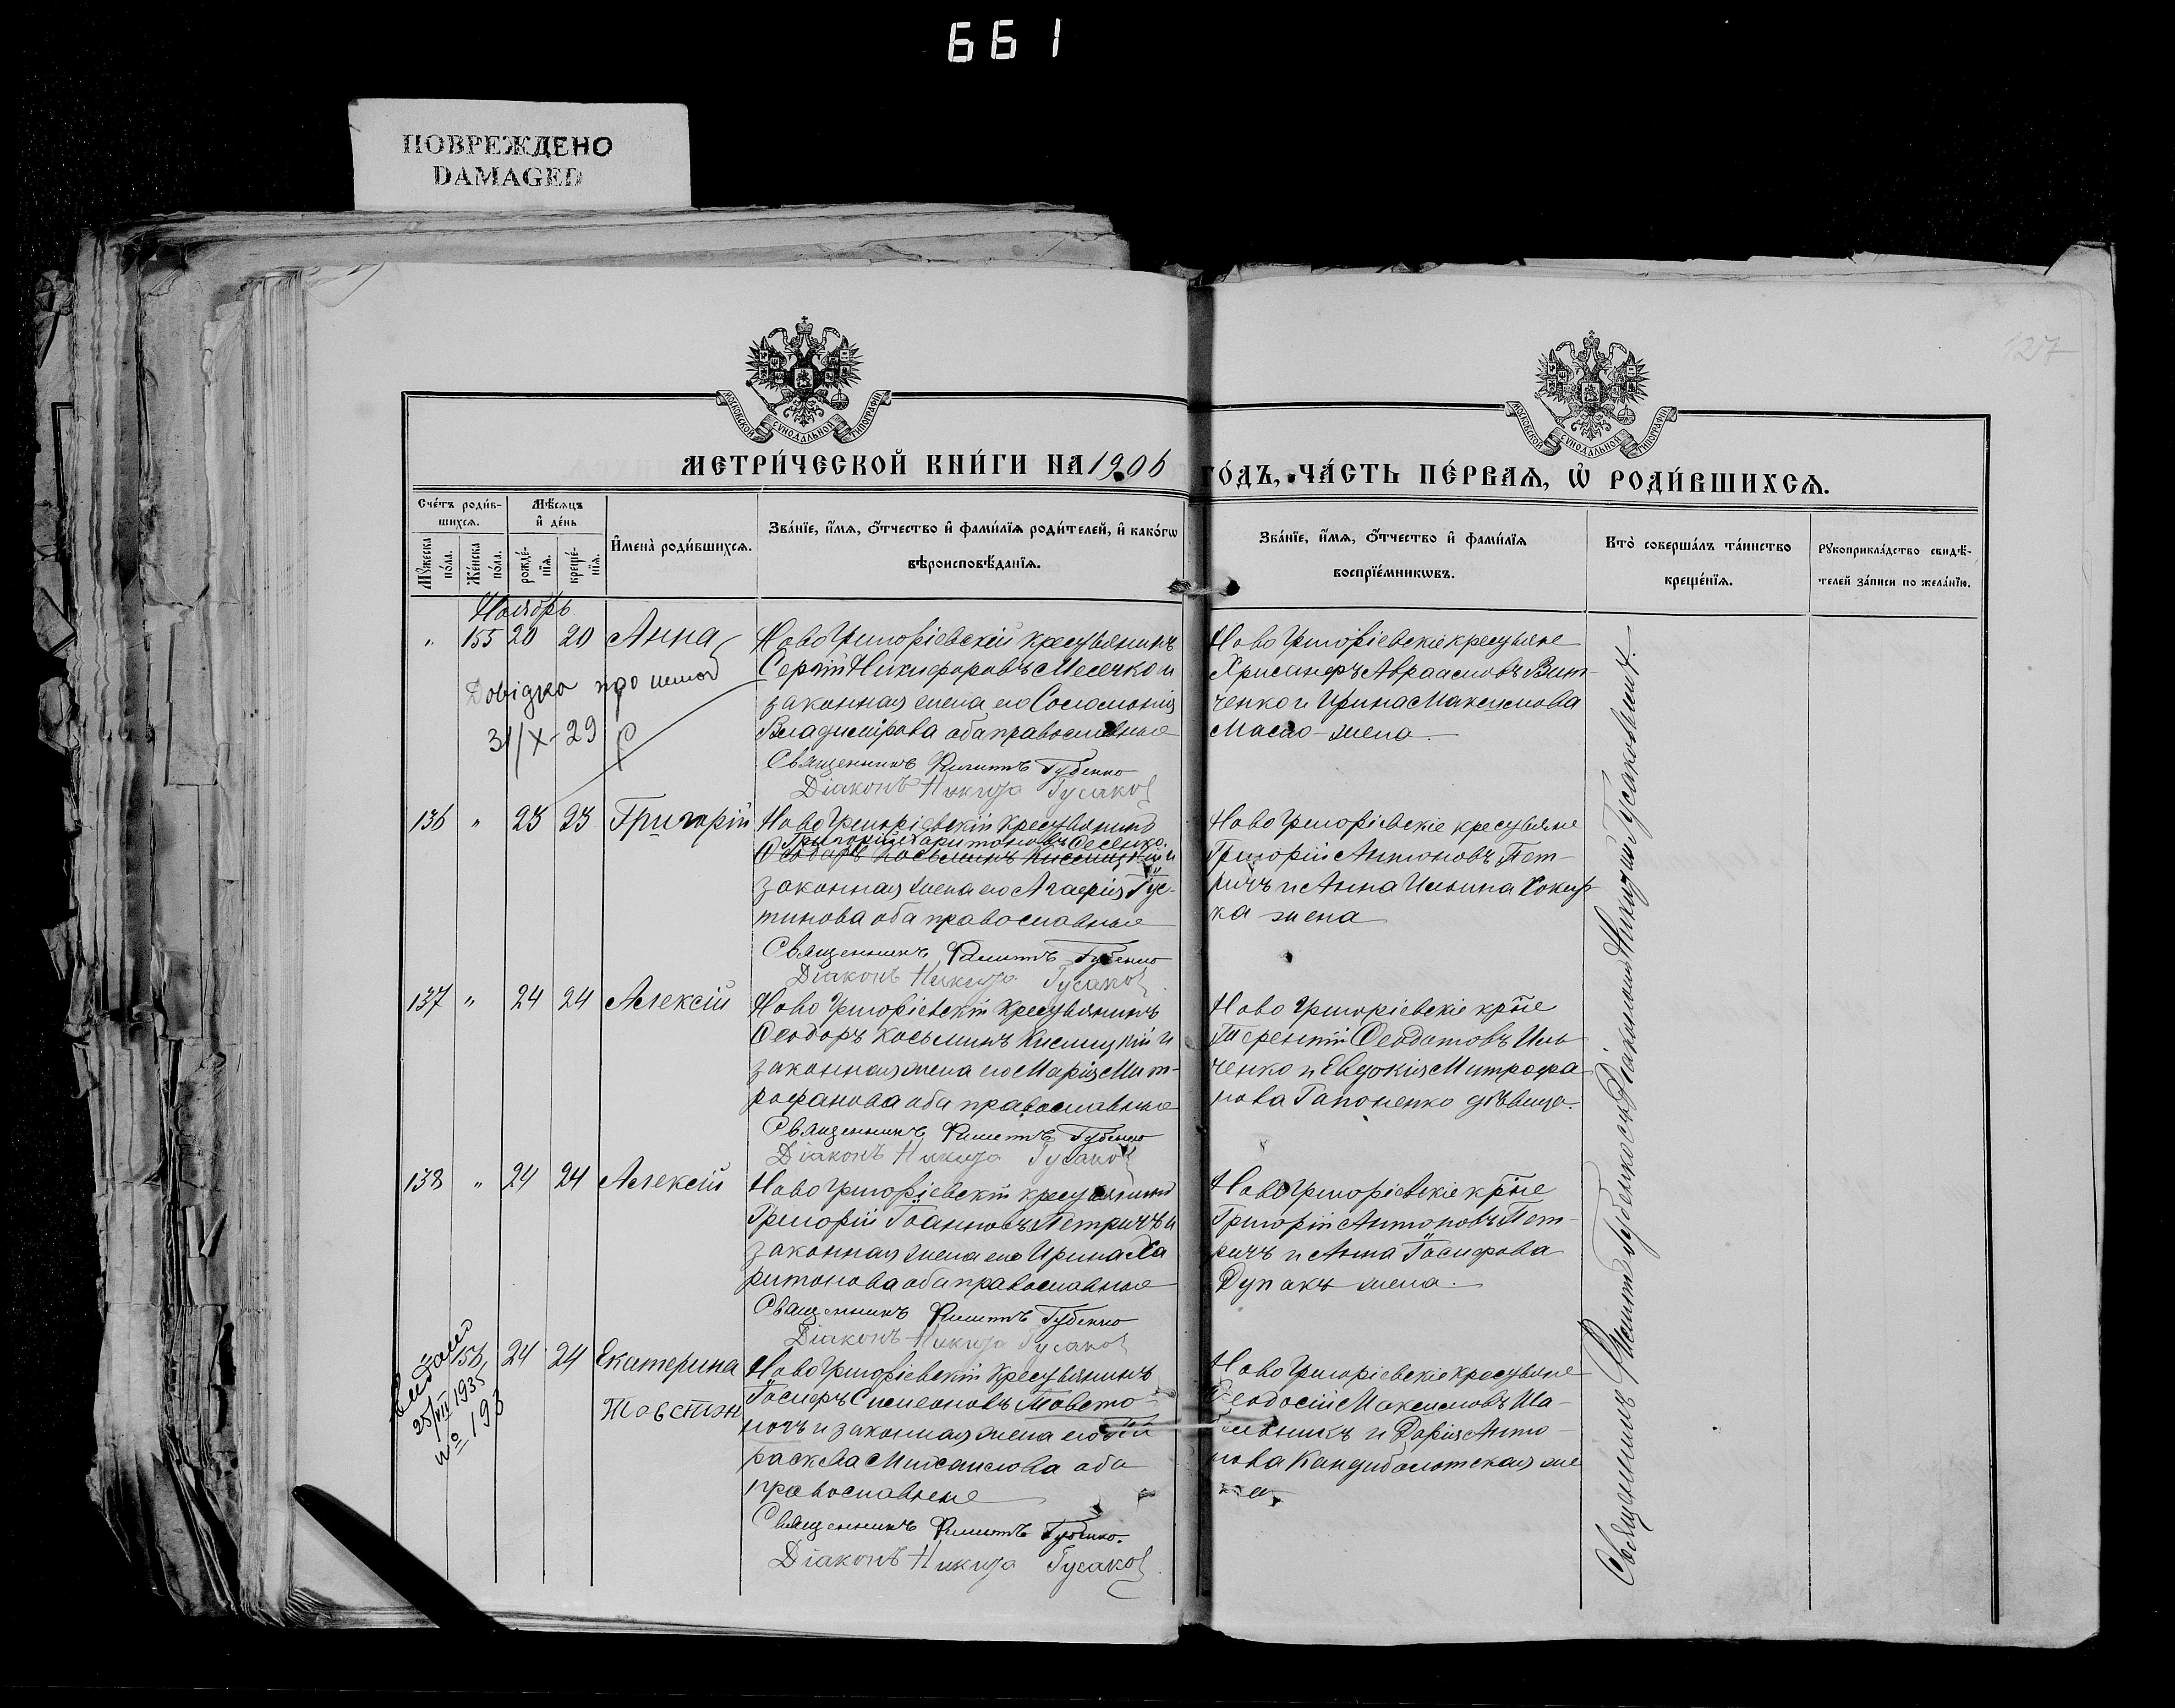 661
ПОВРЕЖДЕНО
DAMAGED
127
МОСКОВСКОЙ СѴНОДАЛЬНОЙ ТИПОГРАФІИ
МОСКОВСКОЙ СѴНОДАЛЬНОЙ ТИПОГРАФІИ
МЕТРИ́ЧЕСКОЙ КНИ́ГИ НА 1906
ГО́ДЪ, ЧА́СТЬ ПЕ́РВАѦ, Ѡ҆ РОДИ́ВШИХСѦ.
Сче́тъ роди́вшихсѧ.
Мꙋ́жеска по́ла.
Же́нска по́ла.
Мѣ́сѧцъ и҆ де́нь
рожде́нїѧ.
креще́нїѧ.
И҆мена̀ роди́вшихсѧ.
Зва́нїе, и҆́мѧ, ѻ҆́тчество и҆ фами́лїѧ роди́телей, и҆ како́гѡ
вѣроисповѣ́данїѧ.
Зва́нїе, и҆́мѧ, ѻ҆́тчество и҆ фами́лїѧ
воспрїе́мникѡвъ.
Кто̀ соверша́лъ та́инство
креще́нїѧ.
Рꙋкоприкла́дство свидѣ́-
телей за́писи по жела́нїю.
Ноябрь
" 155 20 20 Анна
НовоГригоріевскій крестьянинъ
Сергій Никифоровъ Месечко и
законная жена его Соломонія
Владимірова оба православные
Священникъ Филиппъ Губенко
Діаконъ Никита Гусаков
НовоГригоріевскіе крестьяне
Хрисанфъ Авраамовъ Вит-
ченко и Ирина Максимова
Масло - жена.
Довідка про
31/X-29 р
136 " 23 23 Григорій
НовоГригоріевскій крестьянинъ
Григорій Харитоновъ Фесенко
Ѳеодоръ Косьминъ Кислицкій и
законная жена его Агафія Іус-
тинова оба православные
Священникъ Филиппъ Губенко
Діаконъ Никита Гусаков
НовоГригоріевскіе крестьяне
Григорій Антоновъ Пет-
ричъ и Анна Ильина Кокир-
ка жена
137 " 24 24 Алексій
НовоГригоріевскій крестьянинъ
Ѳеодоръ Косьминъ Кислицкій и
законная жена его Марія Мит-
рофанова оба православные
Священникъ Филиппъ Губенко
Діаконъ Никита Гусаков
НовоГригоріевскіе кр̃не
Терентій Ѳеодотовъ Иль
ченко и Евдокія Митрофа
нова Гапоненко дѣвица.
138 " 24 24 Алексій
НовоГригоріевскій крестьянинъ
Григорій Іоанновъ Петричъ и
законная жена его Ирина Ха
ритонова оба православные
Священникъ Филиппъ Губенко
Діаконъ Никита Гусаков
НовоГригоріевскіе кр̃не
Григорій Антоновъ Пет-
ричъ и Анна Іосифова
Дупакъ жена.
156 24 24 Екатерина
25/VII 1935
№ 193
НовоГригоріевскій крестьянинъ
Іосифъ Симеоновъ Товсто-
ногъ и законная жена его Па
раскева Михаилова оба
православные
Священникъ Филиппъ Губенко.
Діаконъ Никита Гусаков
НовоГригоріевскіе крестьяне
Ѳеодосій Максимовъ Ша-
бельникъ и Дарія Анто-
нова Кандиболотская же
на.
Священникъ Филиппъ Губенко съ Діакономъ Никитой Гусаковымъ.